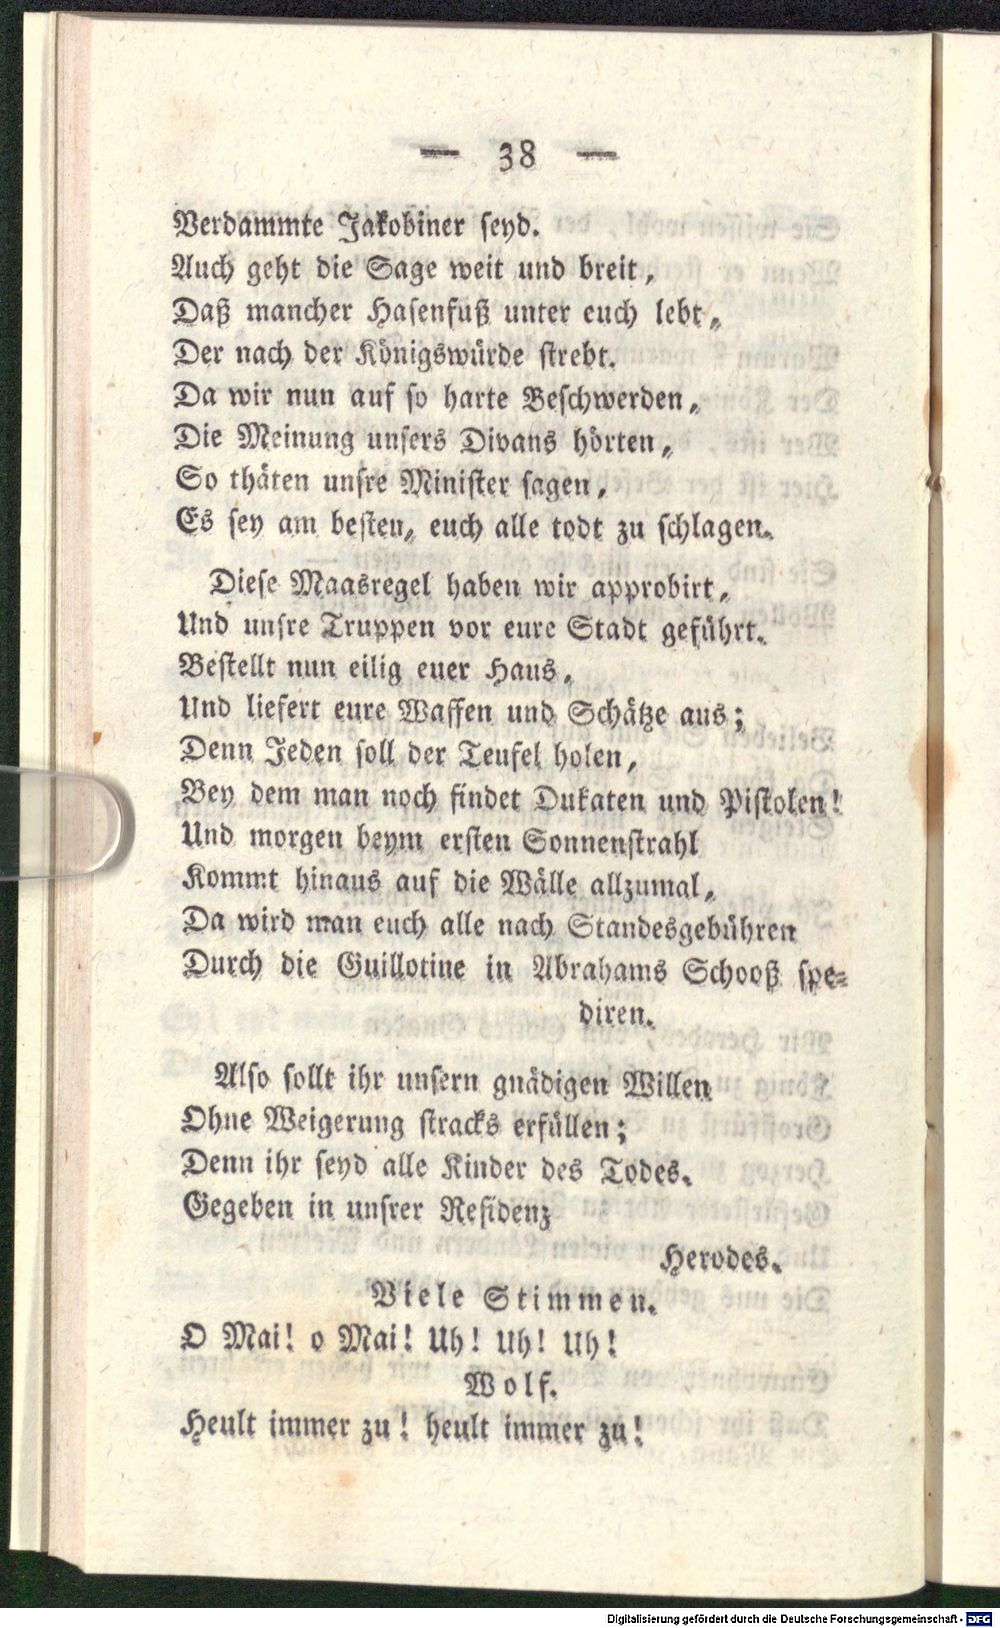 — 38 —
Verdammte Jakobiner seyd.
Auch geht die Sage weit und breit,
Daß mancher Hasenfuß unter euch lebt,
Der nach der Königswürde strebt.
Da wir nun auf so harte Beschwerden,
Die Meinung unsers Divans hörten,
So thäten unsre Minister sagen,
Es sey am besten, euch alle todt zu schlagen.
Diese Maasregel haben wir approbirt,
Und unsre Truppen vor eure Stadt geführt.
Bestellt nun eilig euer Haus,
Und liefert eure Waffen und Schätze aus;
Denn Jeden soll der Teufel holen,
Bey dem man noch findet Dukaten und Pistolen!
Und morgen beym ersten Sonnenstrahl
Kommt hinaus auf die Wälle allzumal,
Da wird man euch alle nach Standesgebühren
Durch die Guillotine in Abrahams Schooß spe-
diren.
Also sollt ihr unsern gnädigen Willen
Ohne Weigerung stracks erfüllen;
Denn ihr seyd alle Kinder des Todes.
Gegeben in unsrer Residenz
Herodes.
Viele Stimmen.
O Mai! o Mai! Uh! Uh! Uh!
Wolf.
Heult immer zu! heult immer zu!
Digitalisierung gefördert durch die Deutsche Forschungsgemeinschaft - DFG